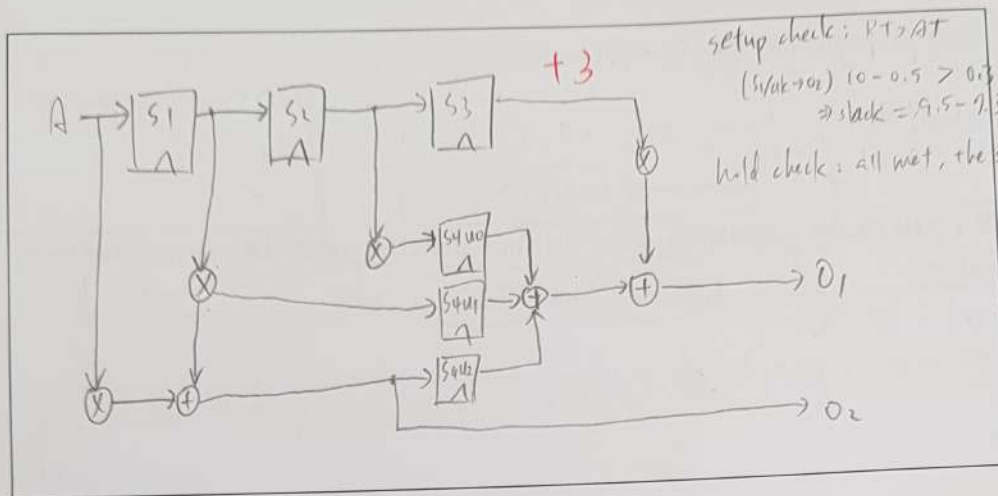 setup check: RT>AT
+3
(S1/clk→O2) 10-0.5 > 0.3
⇒ slack = 9.5-
hold check: all met, the
A
S1
S2
S3
X
S4U0
X
X
S4U1
+
+
O1
S4U2
X
+
O2